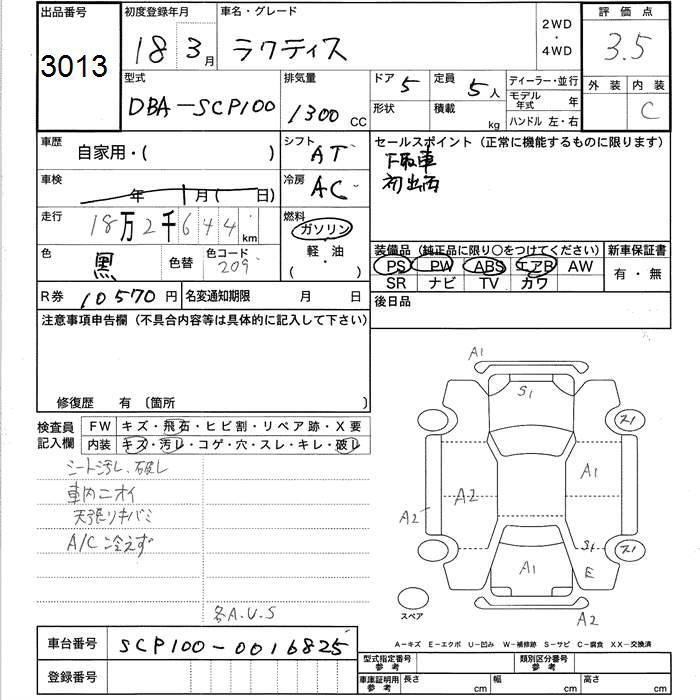 出品番号 初度登録年月 車名・グレード 2WD・4WD 評価点
3013 18 3月 ラクティス 3.5
外装 内装
C
型式 排気量 ドア 5 定員 5人 ディーラー・並行
DBA-SCP100 1300 CC 形状 積載 kg モデル年式 年
ハンドル 左・右
車歴 自家用・( ) シフト AT セールスポイント (正常に機能するものに限ります)
下取車
初出品
車検 年 月( 日) 冷房 AC
走行 18万2千644km 燃料 ガソリン
軽・油
( ・ )
色 黒 色替 色コード 209
装備品 (純正品に限り○をつけてください) 新車保証書
PS PW ABS エアB AW 有・無
SR ナビ TV カワ
R券 10570円 名変通知期限 月 日 後日品
注意事項申告欄 (不具合内容等は具体的に記入して下さい)
修復歴 有 〔箇所 〕
検査員記入欄 FW キズ・飛石・ヒビ割・リペア跡・X要
内装 キズ・汚レ・コゲ・穴・スレ・キレ・破レ
シート汚し、破し
車内ニオイ
天張りキバミ
A/C 冷えず
各A.U.S
A1
S1
A1
A2
A2
S1
E
A1
A2
スペア
A-キズ E-エクボ U-凹み W-補修跡 S-サビ C-腐食 XX-交換済
車台番号 SCP100-0016825
登録番号
型式指定番号 参考 類別区分番号 参考
車庫証明用 参考 長さ cm 幅 cm 高さ cm